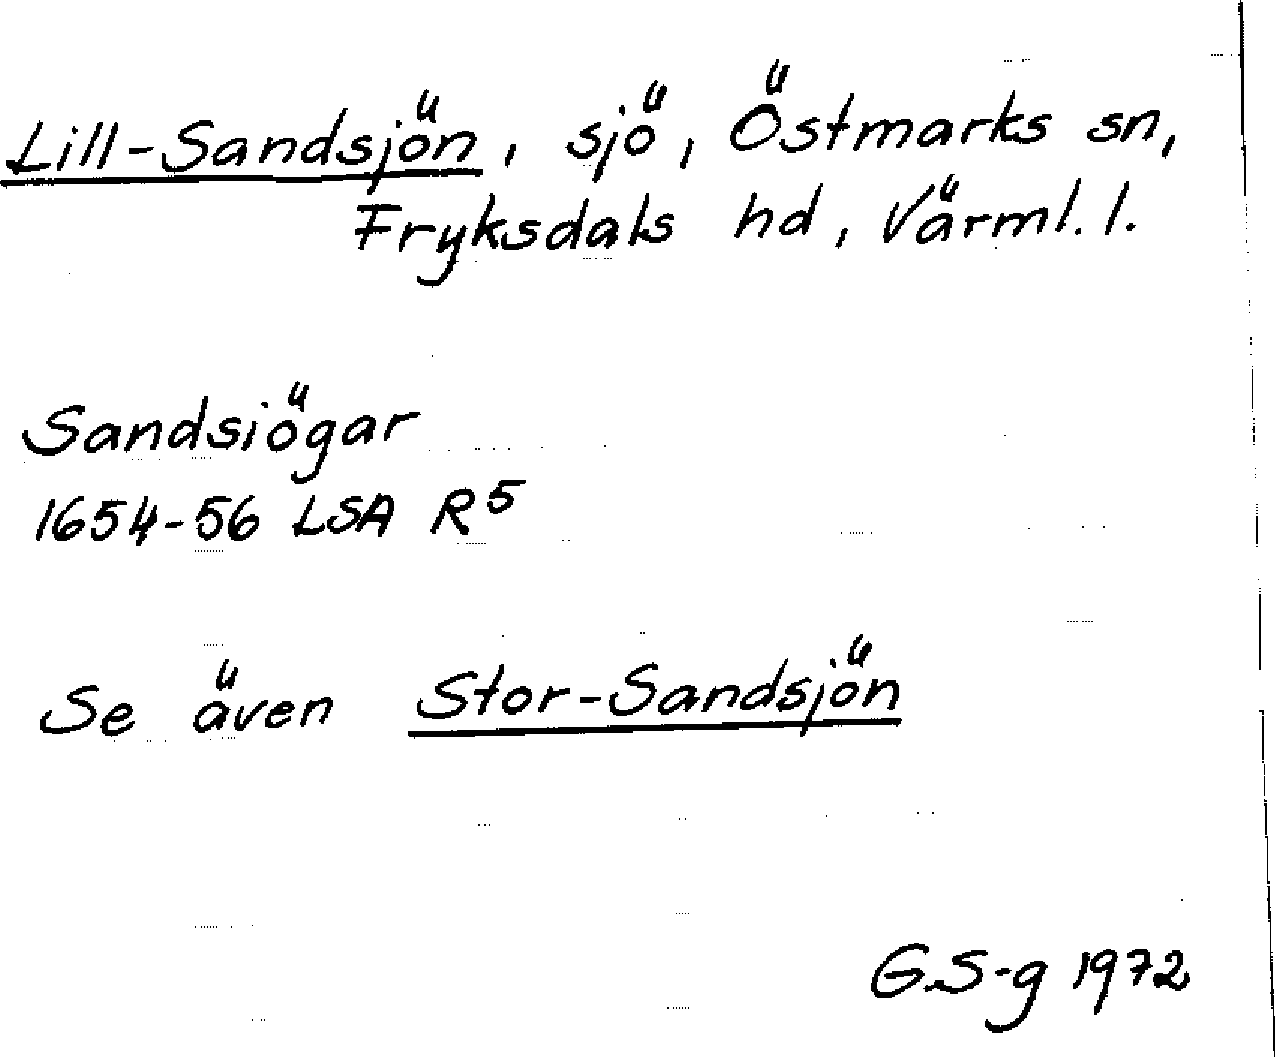 Lill-Sandsjön, sjö, Östmarks sn,
Fryksdals hd, Värml. l.
Sandsiögar
1654-56 LSA R5
Se även Stor-Sandsjön
G.S-g 1972